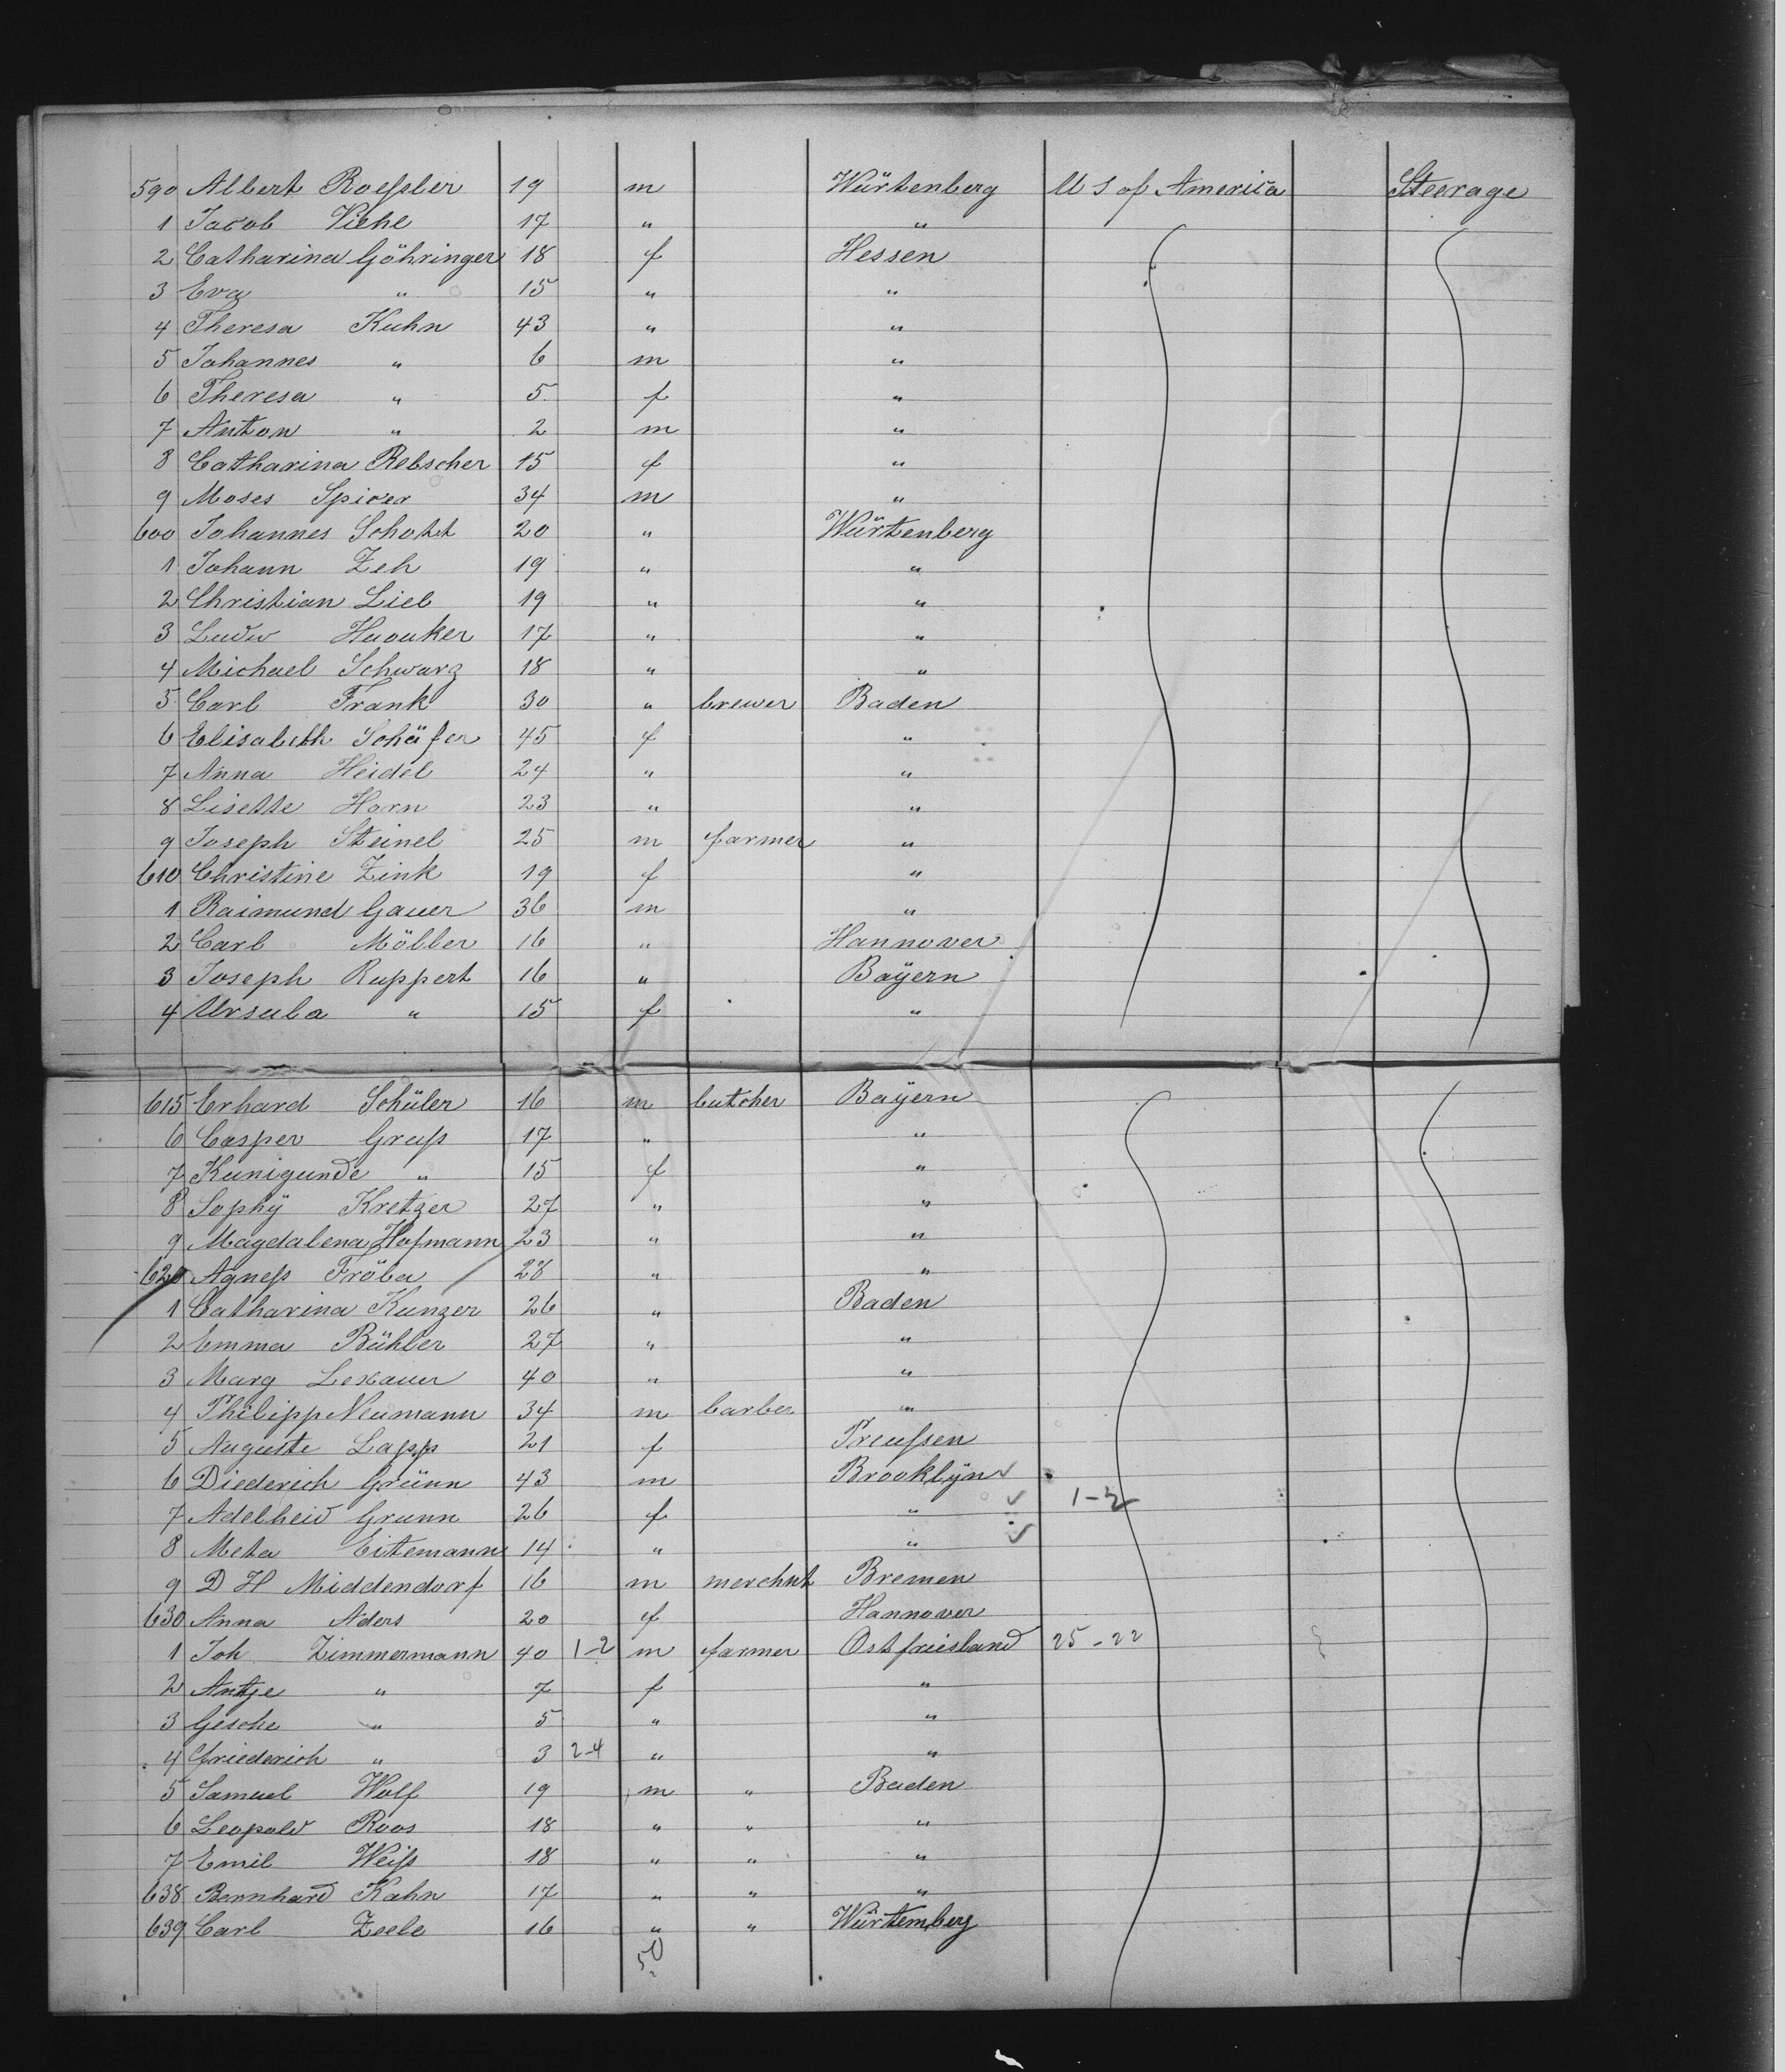 590 Albert Roeſsler 19 m Würtenberg U S of America Steerage
1 Jacob Viehl 17 " "
2 Catharina Göhringer 18 f Hessen
3 Eva " 15 " "
4 Theresa Kuhn 43 " "
5 Johannes " 6 m "
6 Theresa " 5 f "
7 Anton " 2 m "
8 Catharina Rebscher 15 f "
9 Moses 34 m "
600 Johannes Schott 20 " Würtenberg
1 Johann Zeh 19 " "
2 Christian Lieb 19 " "
3 Ludw 17 " "
4 Michael Schwarz 18 " "
5 Carl Frank 30 " brewer Baden
6 Elisabeth Schäfer 45 f "
7 Anna Heidel 24 " "
8 Lisette Horn 23 " "
9 Joseph Steinel 25 m farmer "
610 Christine Zink 19 f "
1 Raimund Gauer 36 m "
2 Carl Möller 16 " Hannover
3 Joseph Ruppert 16 " Baÿern
4 Ursula " 15 f "
615 Erhard Schüler 16 m butcher Baÿern
6 Casper Gruſs 17 " "
7 Kunigunde " 15 f "
8 Sophÿ Kretzer 27 " "
9 Magdalena Hofmann 23 " "
620 Agneſs Fröba 28 " "
1 Catharina Kunzer 26 " Baden
2 Emma Bühler 27 " "
3 Marg Lexauer 40 " "
4 Philipp Neumann 34 m barber "
5 Auguste Lapp 21 f Preuſsen
6 Diederich Grünn 43 m Brooklÿn
7 Adelheid Grunn 26 f " 1-2
8 Meta Eitemann 14 " "
9 D H Middendorf 16 m merchnt Bremen
630 Anna Aders 20 f Hannover
1 Joh Zimmermann 40 1-2 m farmer Ostfriesland 25-22
2 Antje " 7 f "
3 Gesche " 5 " "
4 friederich " 3 2-4 " "
5 Samuel Wolf 19 m " Baden
6 Leopold Roos 18 " " "
7 Emil Weiſs 18 " " "
638 Bernhard Kahn 17 " " "
639 Carl Zeele 16 " " Würtemberg
50